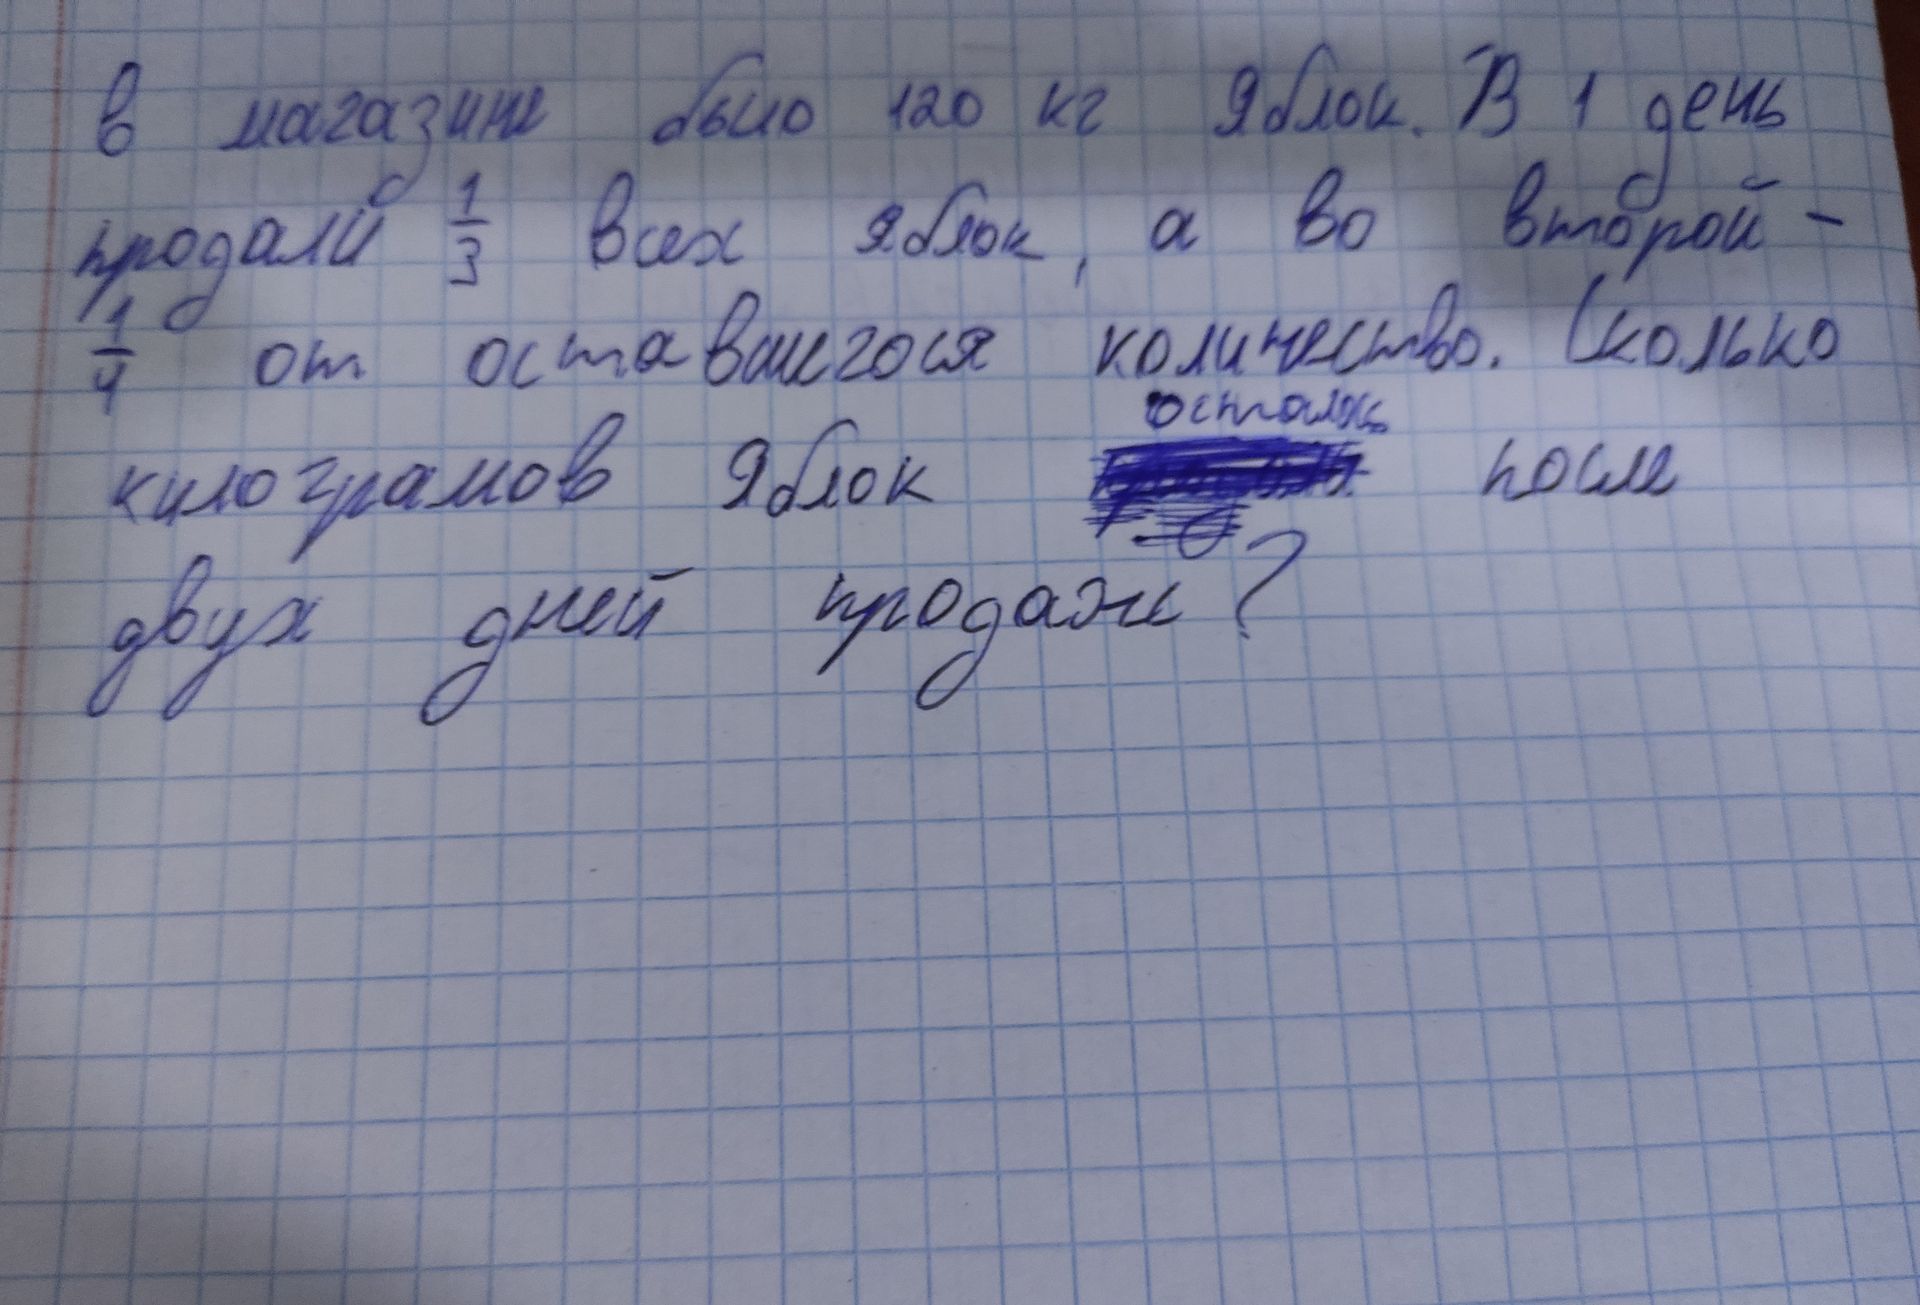 В магазине было 120 кг яблок. В 1 день
продали 1/3 всех яблок, а во второй -
1/4 от оставшегося количество. Сколько
осталось
килограмов яблок после
двух дней продаж?